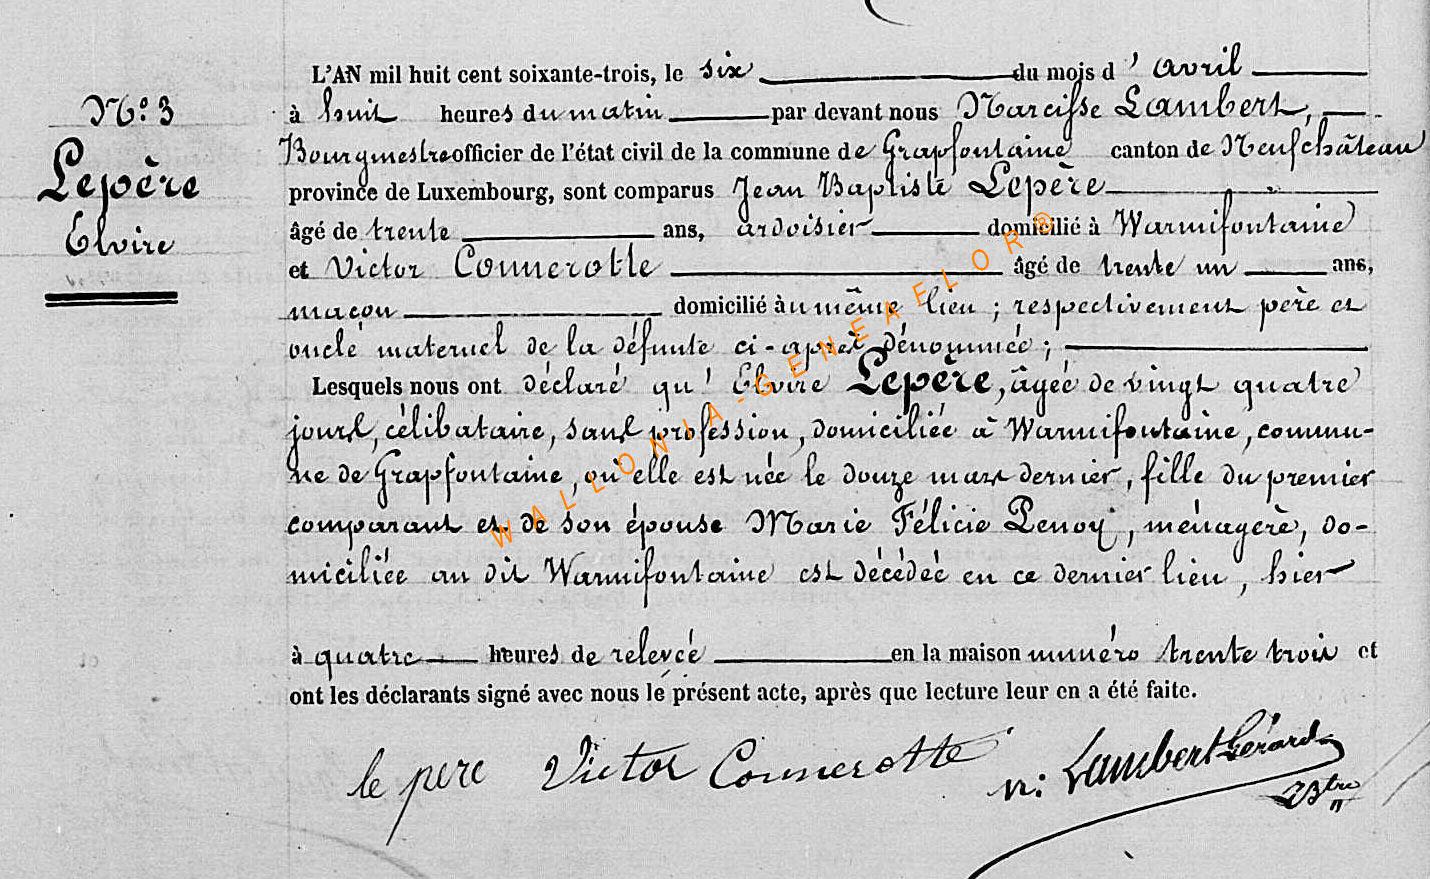 L'AN mil huit cent soixante-trois, le six du mois d'avril
N.o 3
à huit heures du matin par devant nous Narcisse Lambert,
Bourgmestre officier de l'état civil de la commune de Grapfontaine canton de Neufchâteau
Lepère
province de Luxembourg, sont comparus Jean Baptiste Lepère
Elvire
âgé de trente ans, ardoisier domicilié à Warmifontaine
et Victor Connerotte âgé de trente un ans,
maçon domicilié au même lieu ; respectivement père et
oncle maternel de la défunte ci-après dénommée ;
Lesquels nous ont déclaré qu'Elvire Lepère, âgée de vingt quatre
jours, célibataire, sans profession, domiciliée à Warmifontaine, commu-
ne de Grapfontaine, où elle est née le douze mars dernier, fille du premier
comparant et de son épouse Marie Félicie Penoy, ménagère, do-
miciliée au dit Warmifontaine est décédée en ce dernier lieu, hier
à quatre heures de relevée en la maison numéro trente trois et
ont les déclarants signé avec nous le présent acte, après que lecture leur en a été faite.
le pere Victor Connerotte n: Lambert Gérard
Btre
WALLONIA-GENEAELOR®